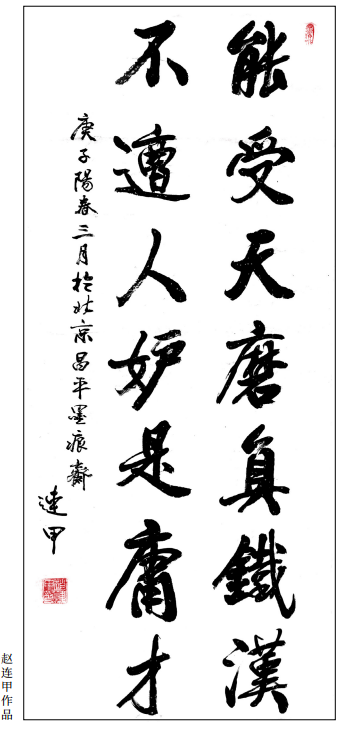 能受天磨真鐵漢
不遭人妒是庸才
庚子陽春三月於北京昌平墨痕齋
連甲
赵连甲作品